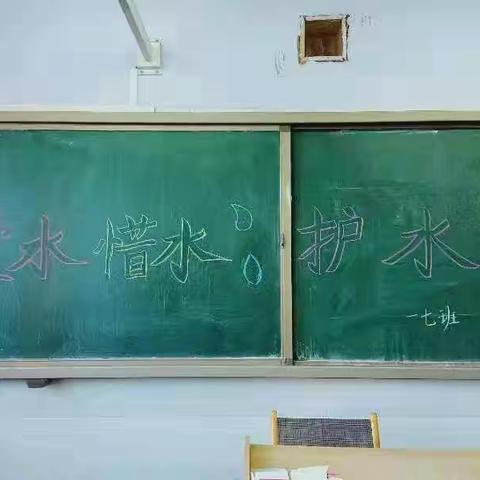 水 惜水 护水
一七班